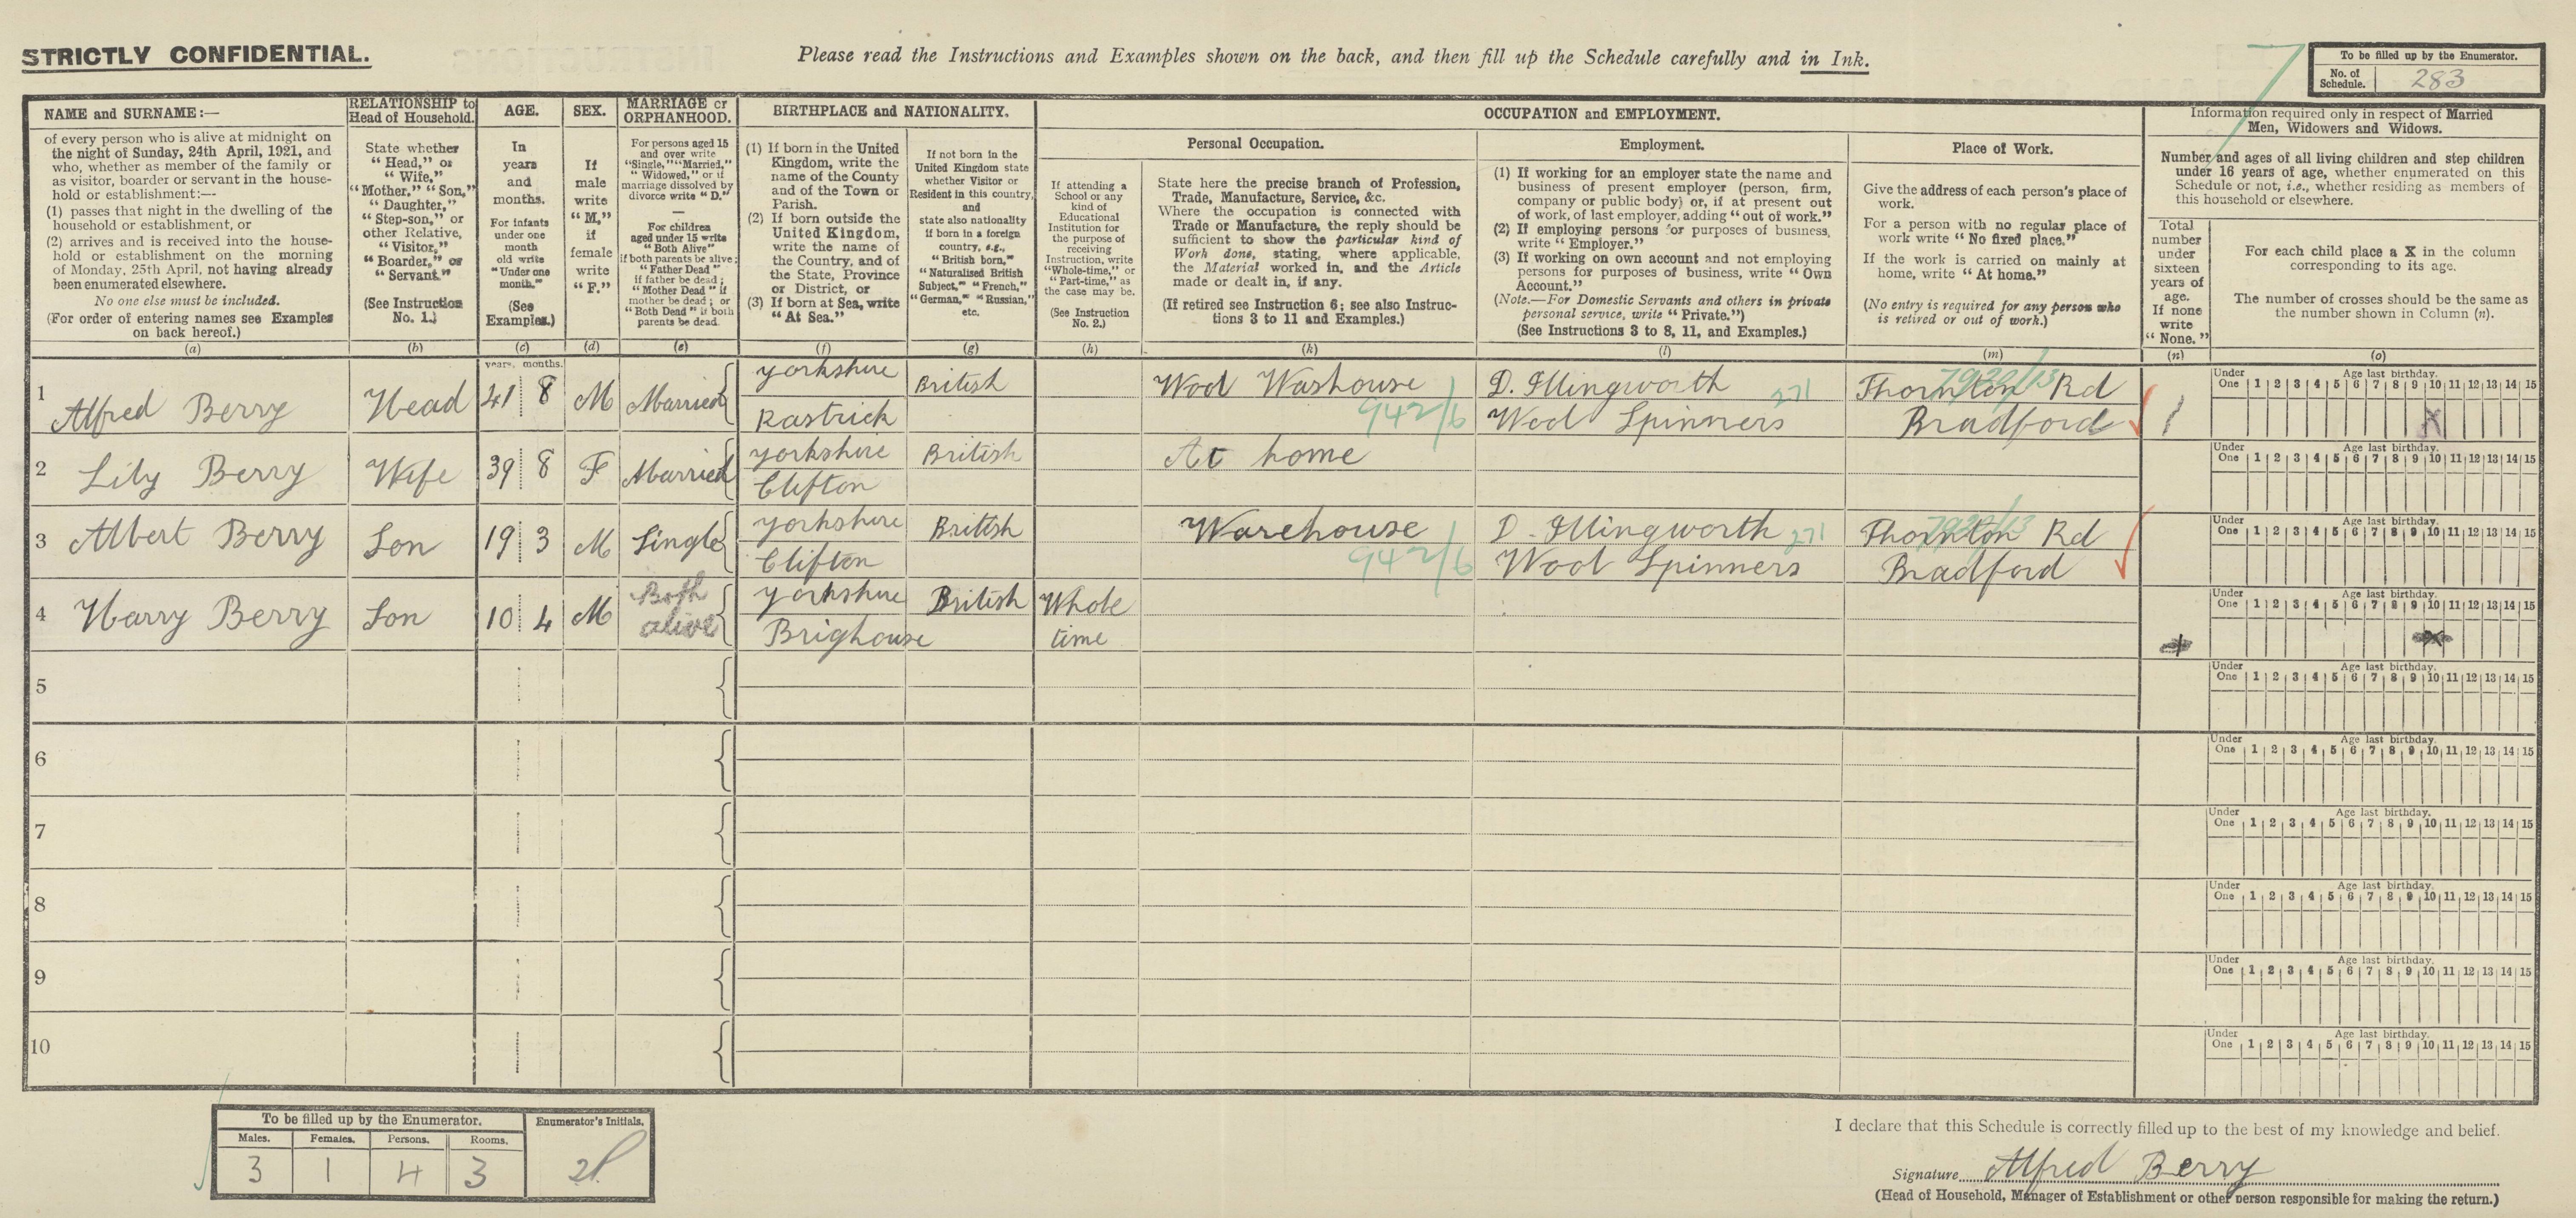 STRICTLY CONFIDENTIAL.
Please read the Instructions and Examples shown on the back, and then fill up the Schedule carefully and in Ink.
To be filled up by the Enumerator.
No. of Schedule. 283
NAME and SURNAME:—
of every person who is alive at midnight on
the night of Sunday, 24th April, 1921, and
who, whether as member of the family or
as visitor, boarder or servant in the house-
hold or establishment:—
(1) passes that night in the dwelling of the
household or establishment, or
(2) arrives and is received into the house-
hold or establishment on the morning
of Monday, 25th April, not having already
been enumerated elsewhere.
No one else must be included.
(For order of entering names see Examples
on back hereof.)
(a)
RELATIONSHIP to
Head of Household.
State whether
"Head," or
"Wife,"
"Mother," "Son,"
"Daughter,"
"Step-son," or
other Relative,
"Visitor,"
"Boarder," or
"Servant."
(See Instruction
No. 1.)
(b)
AGE.
In
years
and
months.
For infants
under one
month
old write
"Under one
month."
(See
Examples.)
(c)
SEX.
If
male
write
"M,"
if
female
write
"F."
(d)
MARRIAGE or
ORPHANHOOD.
For persons aged 15
and over write
"Single," "Married,"
"Widowed," or if
marriage dissolved by
divorce write "D."
—
For children
aged under 15 write
"Both Alive"
if both parents be alive;
"Father Dead"
if father be dead;
"Mother Dead" if
mother be dead; or
"Both Dead" if both
parents be dead.
(e)
BIRTHPLACE and NATIONALITY.
(1) If born in the United
Kingdom, write the
name of the County
and of the Town or
Parish.
(2) If born outside the
United Kingdom,
write the name of
the Country, and of
the State, Province
or District, or
(3) If born at Sea, write
"At Sea."
(f)
If not born in the
United Kingdom state
whether Visitor or
Resident in this country,
and
state also nationality
if born in a foreign
country, e.g.,
"British born,"
"Naturalised British
Subject," "French,"
"German," "Russian,"
etc.
(g)
OCCUPATION and EMPLOYMENT.
If attending a
School or any
kind of
Educational
Institution for
the purpose of
receiving
Instruction, write
"Whole-time," or
"Part-time," as
the case may be.
(See Instruction
No. 2.)
(h)
Personal Occupation.
State here the precise branch of Profession,
Trade, Manufacture, Service, &c.
Where the occupation is connected with
Trade or Manufacture, the reply should be
sufficient to show the particular kind of
Work done, stating, where applicable,
the Material worked in, and the Article
made or dealt in, if any.
(If retired see Instruction 6; see also Instruc-
tions 3 to 11 and Examples.)
(k)
Employment.
(1) If working for an employer state the name and
business of present employer (person, firm,
company or public body) or, if at present out
of work, of last employer, adding "out of work."
(2) If employing persons for purposes of business,
write "Employer."
(3) If working on own account and not employing
persons for purposes of business, write "Own
Account."
(Note.—For Domestic Servants and others in private
personal service, write "Private.")
(See Instructions 3 to 8, 11, and Examples.)
(l)
Place of Work.
Give the address of each person's place of
work.
For a person with no regular place of
work write "No fixed place."
If the work is carried on mainly at
home, write "At home."
(No entry is required for any person who
is retired or out of work.)
(m)
Information required only in respect of Married
Men, Widowers and Widows.
Number and ages of all living children and step children
under 16 years of age, whether enumerated on this
Schedule or not, i.e., whether residing as members of
this household or elsewhere.
Total
number
under
sixteen
years of
age.
If none
write
"None."
(n)
For each child place a X in the column
corresponding to its age.
The number of crosses should be the same as
the number shown in Column (n).
(o)
years. months.
1 Alfred Berry Head 41 8 M Married Yorkshire British Wool Washouse D. Illingworth 271 Thornton Rd
Rastrick 942/6 Wool Spinners Bradford 1 X
Under One Age last birthday. 1 2 3 4 5 6 7 8 9 10 11 12 13 14 15
2 Lily Berry Wife 39 8 F Married Yorkshire British At home
Clifton
Under One Age last birthday. 1 2 3 4 5 6 7 8 9 10 11 12 13 14 15
3 Albert Berry Son 19 3 M Single Yorkshire British Warehouse D. Illingworth 271 Thornton Rd
Clifton 942/6 Wool Spinners Bradford
Under One Age last birthday. 1 2 3 4 5 6 7 8 9 10 11 12 13 14 15
4 Harry Berry Son 10 4 M Both alive Yorkshire British Whole
Brighouse time
Under One Age last birthday. 1 2 3 4 5 6 7 8 9 10 11 12 13 14 15
5
Under One Age last birthday. 1 2 3 4 5 6 7 8 9 10 11 12 13 14 15
6
Under One Age last birthday. 1 2 3 4 5 6 7 8 9 10 11 12 13 14 15
7
Under One Age last birthday. 1 2 3 4 5 6 7 8 9 10 11 12 13 14 15
8
Under One Age last birthday. 1 2 3 4 5 6 7 8 9 10 11 12 13 14 15
9
Under One Age last birthday. 1 2 3 4 5 6 7 8 9 10 11 12 13 14 15
10
Under One Age last birthday. 1 2 3 4 5 6 7 8 9 10 11 12 13 14 15
To be filled up by the Enumerator.
Males. Females. Persons. Rooms.
3 1 4 3
Enumerator's Initials.
I declare that this Schedule is correctly filled up to the best of my knowledge and belief.
Signature Alfred Berry
(Head of Household, Manager of Establishment or other person responsible for making the return.)